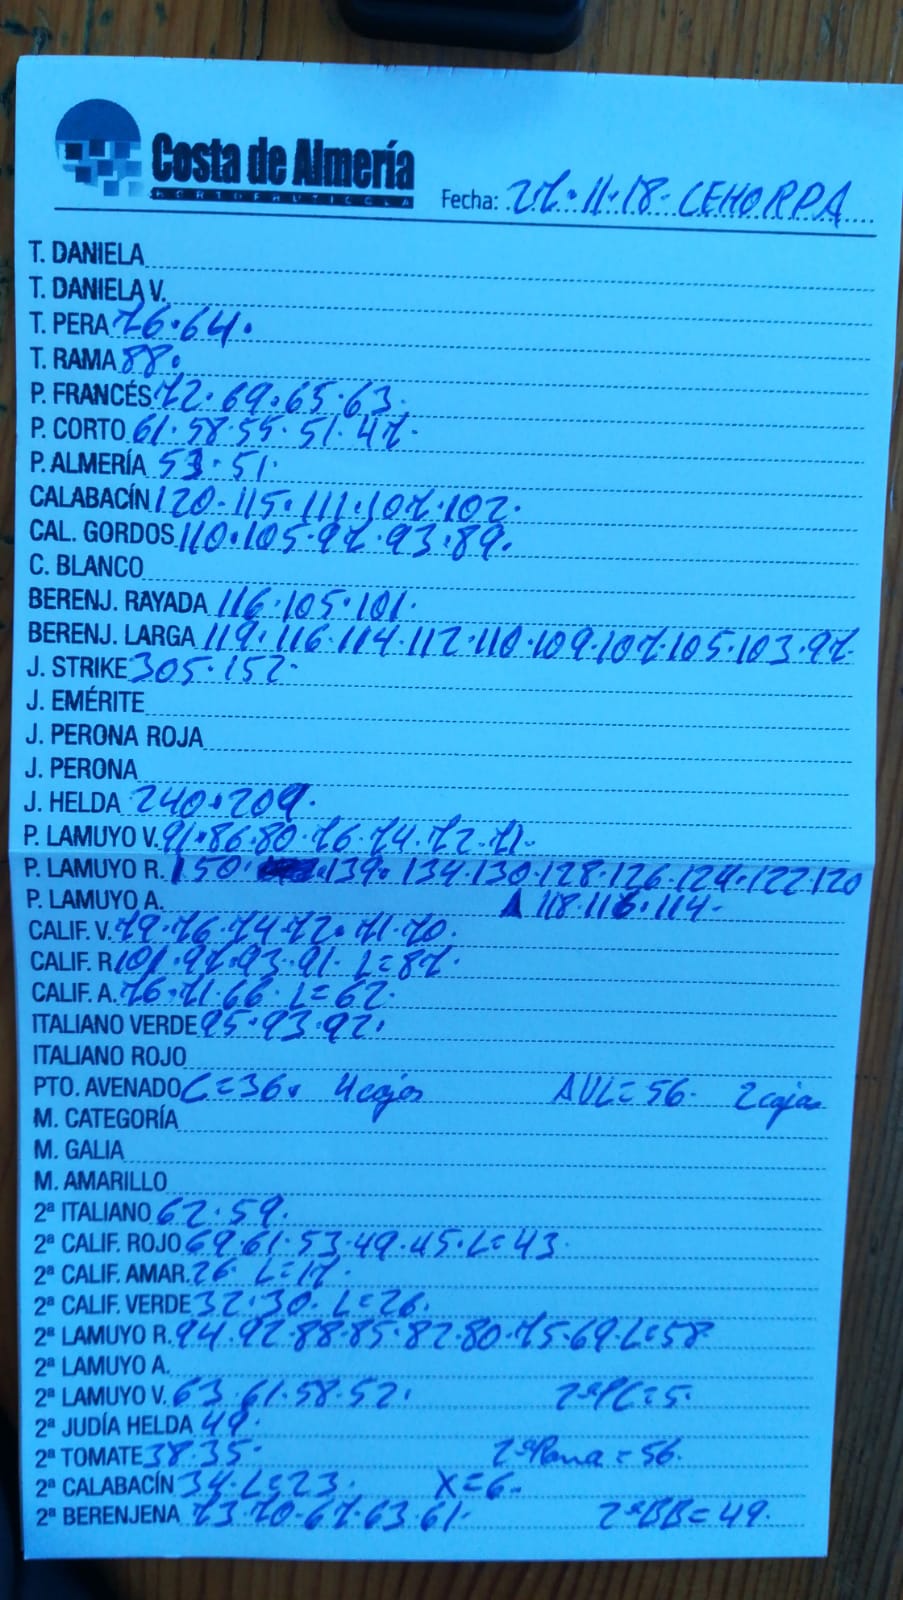 Costa de Almería
HORTOFRUTICOLA
Fecha: 27.11.18. CEHORPA
T. DANIELA
T. DANIELA V.
T. PERA 76.64.
T. RAMA 88.
P. FRANCÉS 72.69.65.63.
P. CORTO 61.58.55.51.47.
P. ALMERÍA 53.51.
CALABACÍN 120.115.111.107.102.
CAL. GORDOS 110.105.97.93.89.
C. BLANCO
BERENJ. RAYADA 116.105.101.
BERENJ. LARGA 119.116.114.112.110.109.107.105.103.97.
J. STRIKE 305.152.
J. EMÉRITE
J. PERONA ROJA
J. PERONA
J. HELDA 240.209.
P. LAMUYO V. 91.86.80.76.74.72.71.
P. LAMUYO R. 150. .139.134.130.128.126.124.122.120
P. LAMUYO A. 118.116.114.
CALIF. V. 79.76.74.72.71.70.
CALIF. R 101.97.93.91. L=87.
CALIF. A. 76.71.66. L=62.
ITALIANO VERDE 95.93.92.
ITALIANO ROJO
PTO. AVENADO C=36. 4 cajas AVL=56. 2 cajas
M. CATEGORÍA
M. GALIA
M. AMARILLO
2ª ITALIANO 62.59.
2ª CALIF. ROJO 69.61.53.49.45. L=43.
2ª CALIF. AMAR. 26 L=17.
2ª CALIF. VERDE 32.30. L=26.
2ª LAMUYO R. 94.92.88.85.82.80.75.69 L=58.
2ª LAMUYO A.
2ª LAMUYO V. 63.61.58.52. 2ªPC=5.
2ª JUDÍA HELDA 49.
2ª TOMATE 38.35. =56.
2ª CALABACÍN 34. L=23. X=6.
2ª BERENJENA 73.70.67.63.61. 2ªBB=49.